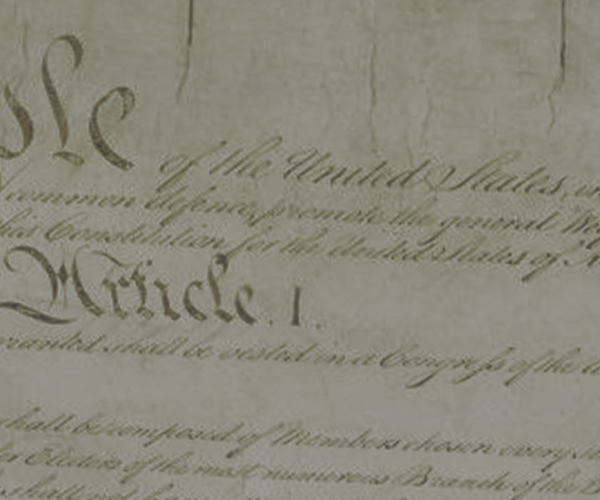 ple of the United States, in
common defence, promote the general Wel
his Constitution for the United States of A
Article. I.
ranted shall be vested in a Congress of the U
shall be composed of Members chosen every se
for Electors of the most numerous Branch of the
shall not